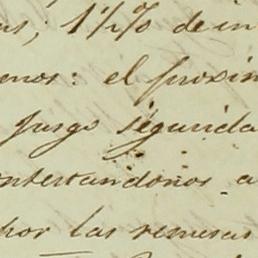 1½% de in
enos: el proxim
Jurgo segunda
ntestandonos a
por las remesas